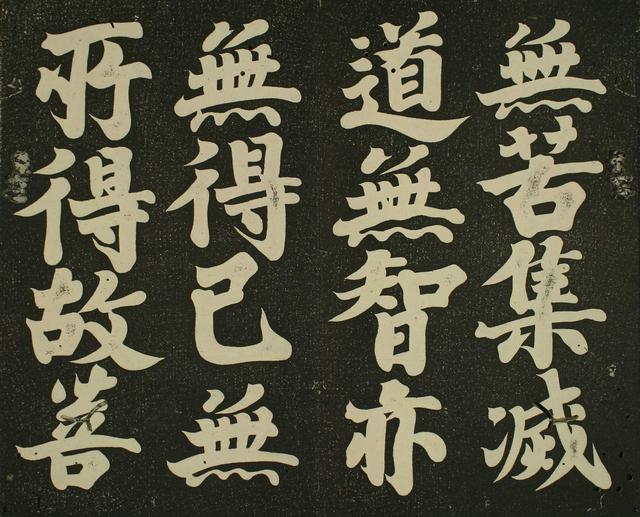 無苦集滅
道無智亦
無得已無
所得故菩